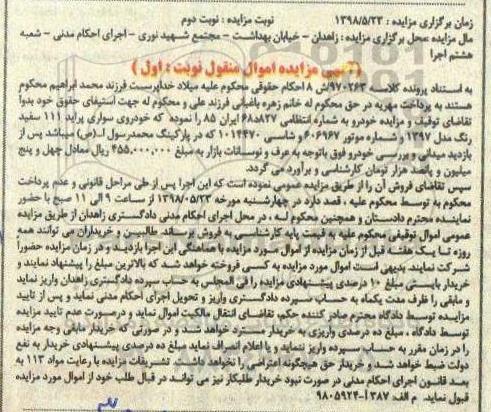 زمان برگزاری مزایده : ۱۳۹۸/۵/۲۳ نوبت مزایده : نوبت دوم
مال مزایده :محل برگزاری مزایده : زاهدان - خیابان بهداشت - مجتمع شهید نوری - اجرای احکام مدنی - شعبه
هشتم اجرا
(آگهی مزایده اموال منقول نوبت : اول )
به استناد پرونده کلاسه ۹۷۰۲۶۳ش ۸ احکام حقوقی محکوم علیه میلاد خداپرست فرزند محمد ابراهیم محکوم
هستند به پرداخت مهریه در حق محکوم له خانم زهره باغبانی فرزند علی و محکوم له جهت استیفای حقوق خود بدوا
تقاضای توقیف و مزایده خودرو به شماره انتظامی ۶۸۵۲۷ ایران ۸۵ را نموده که خودروی سواری پراید ۱۱۱ سفید
رنگ مدل ۱۳۹۷، شماره موتور ۶۰۶۹۶۷ و شاسی ۱۰۱۴۴۷۰ که در پارکینگ محمدرسول ا..(ص) میباشد پس از
بازدید میدانی و بررسی خودرو فوق باتوجه به عرف و نوسانات بازار به مبلغ ۴۵۵,۰۰۰,۰۰۰ ریال معادل چهل و پنج
میلیون و پانصد هزار تومان کارشناسی و برآورد می گردد.
سپس تقاضای فروش آن را از طریق مزایده عمومی نموده است که این اجرا پس از طی مراحل قانونی و عدم پرداخت
محکوم به توسط محکوم علیه ، قصد دارد در چهارشنبه مورخه ۱۳۹۸/۰۵/۲۳ از ساعت ۹ الی ۱۱ صبح با حضور
نماینده محترم دادستان و همچنین محکوم له ، در محل اجرای احکام مدنی دادگستری زاهدان از طریق مزایده
عمومی اموال توقیفی محکوم علیه به قیمت پایه کارشناسی به فروش برساند طالبیین و خریداران می توانند همه
روزه تا یک هفته قبل از زمان مزایده از اموال مورد مزایده با هماهنگی این اجرا بازدید و در زمان مزایده حضورا
شرکت نمایند. بدیهی است اموال مورد مزایده به کسی فروخته خواهد شد که بالاترین مبلغ را پیشنهاد نمایند و
خریدار بایستی مبلغ ۱۰ درصدی پیشنهادی مزایده را فی المجلس به حساب سپرده دادگستری زاهدان واریز نماید
و مابقی را ظرف مدت یکماه به حساب سپرده دادگستری واریز و تحویل اجرای احکام مدنی نماید و پس از تایید
مزایده توسط دادگاه محترم صادر کننده حکم، تقاضای انتقال مالکیت اموال نماید و درصورت عدم تایید مزایده
توسط دادگاه ، مبلغ ده درصدی واریزی به خریدار مسترد خواهد شد و در صورتی که خریدار مابقی وجه مزایده
را در زمان مقرر به حساب سپرده واریز ننماید و یا اعلام انصراف نماید مبلغ ده درصدی پیشنهادی خریدار به نفع
دولت ضبط خواهد شد و خریدار حق هیچگونه اعتراضی را نخواهد داشت. تشریفات مزایده با رعایت مواد ۱۱۳ به
بعد قانون اجرای احکام مدنی در صورت نبود خریدار طلبکار نیز می تواند در قبال طلب خود از اموال مورد مزایده
قبول نماید. م الف: ۳۸۷ آ-۹۸۰۵۹۲۴